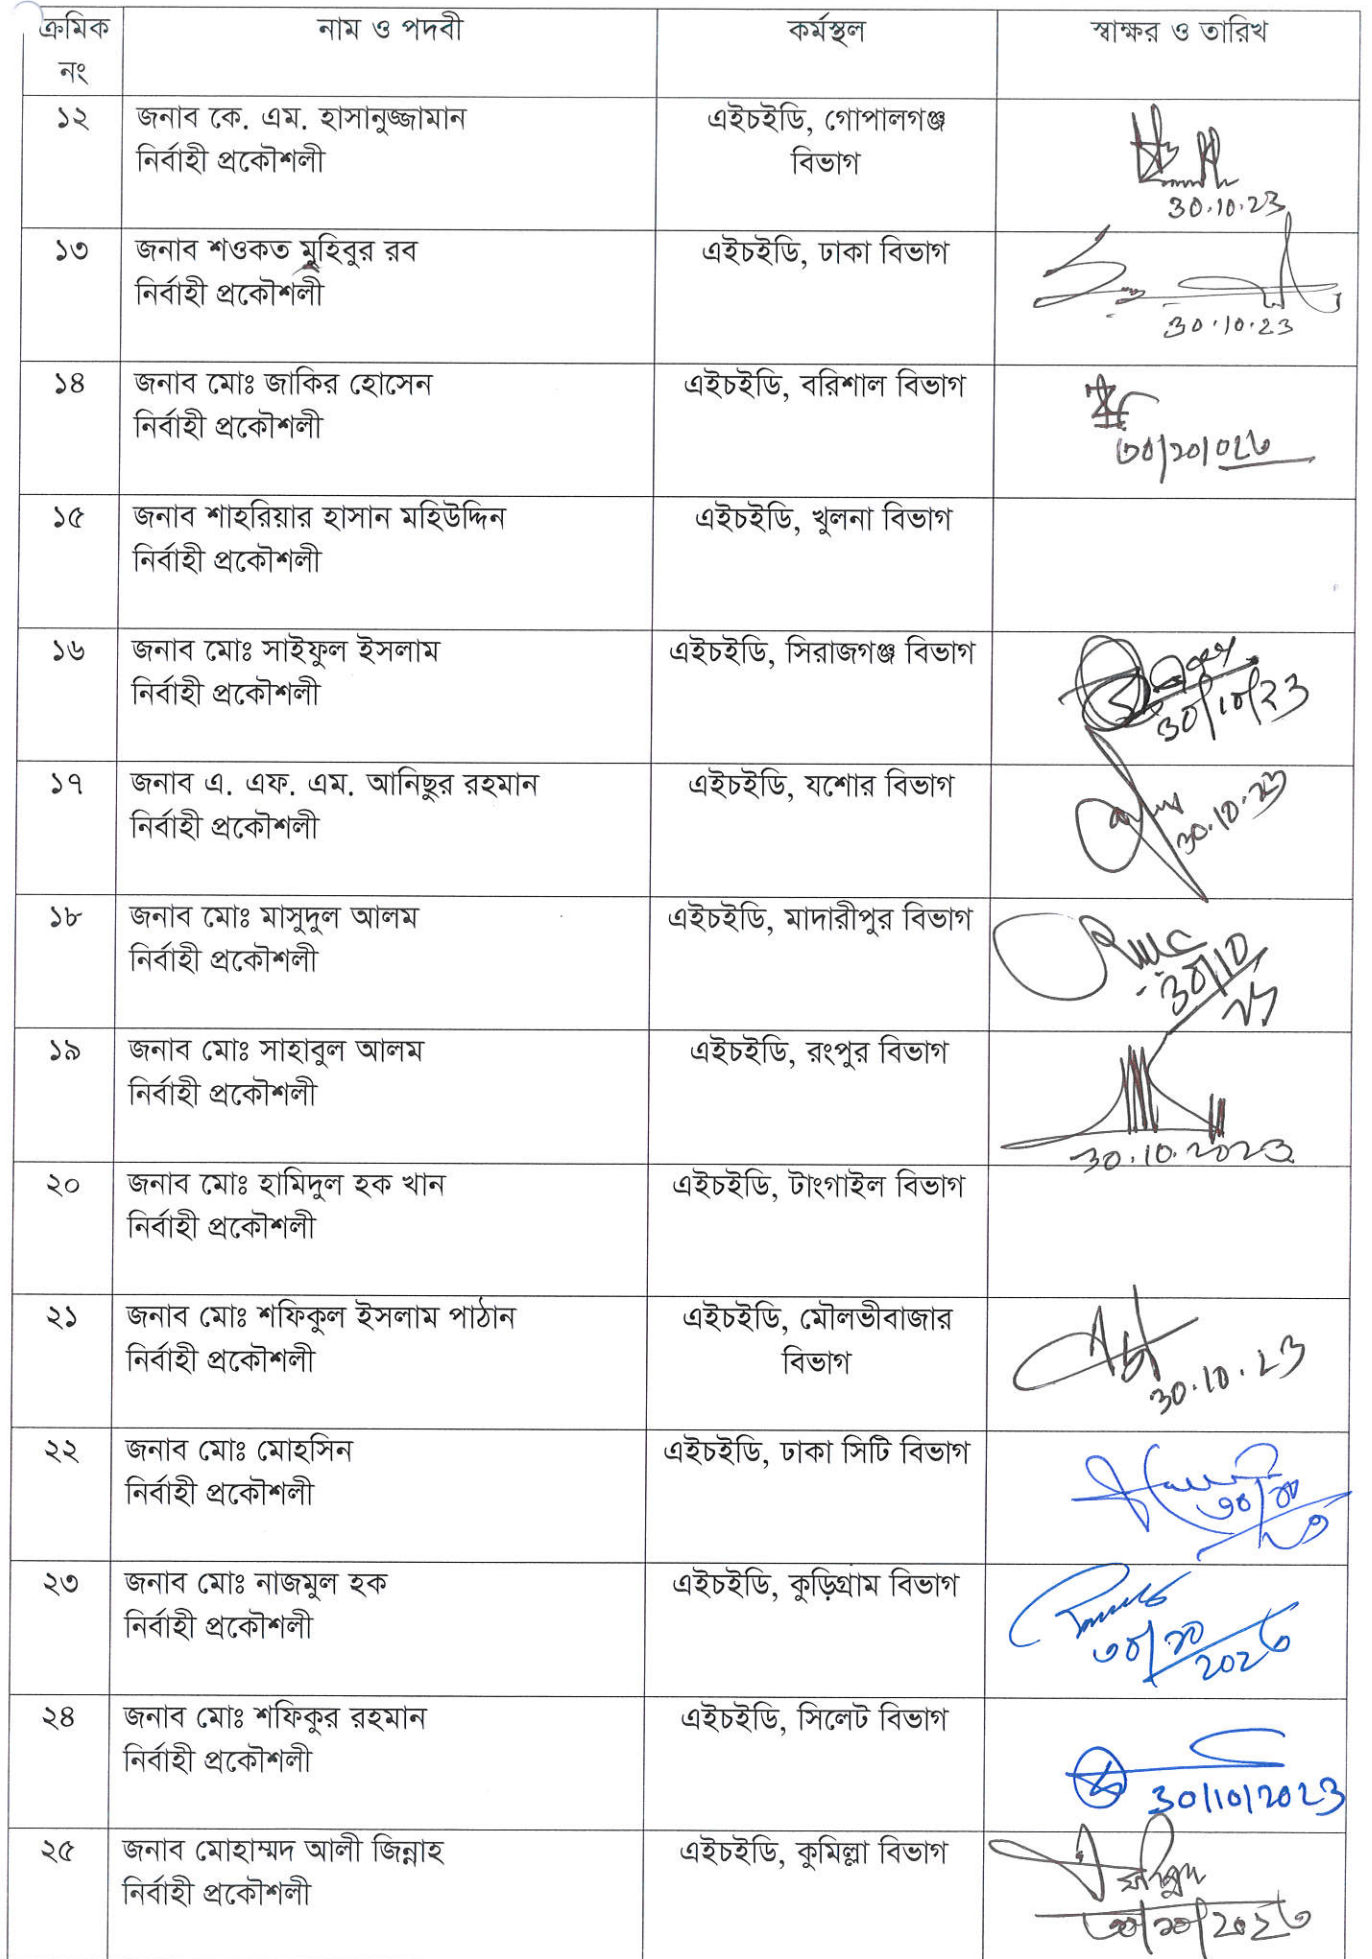 ক্রমিক নং
নাম ও পদবী
কর্মস্থল
স্বাক্ষর ও তারিখ
১২
জনাব কে. এম. হাসানুজ্জামান
নির্বাহী প্রকৌশলী
এইচইডি, গোপালগঞ্জ
বিভাগ
30.10.23
১৩
জনাব শওকত মুহিবুর রব
নির্বাহী প্রকৌশলী
এইচইডি, ঢাকা বিভাগ
30.10.23
১৪
জনাব মোঃ জাকির হোসেন
নির্বাহী প্রকৌশলী
এইচইডি, বরিশাল বিভাগ
১৫
জনাব শাহরিয়ার হাসান মহিউদ্দিন
নির্বাহী প্রকৌশলী
এইচইডি, খুলনা বিভাগ
১৬
জনাব মোঃ সাইফুল ইসলাম
নির্বাহী প্রকৌশলী
এইচইডি, সিরাজগঞ্জ বিভাগ
30/10/23
১৭
জনাব এ. এফ. এম. আনিছুর রহমান
নির্বাহী প্রকৌশলী
এইচইডি, যশোর বিভাগ
30.10.23
১৮
জনাব মোঃ মাসুদুল আলম
নির্বাহী প্রকৌশলী
এইচইডি, মাদারীপুর বিভাগ
30/10
23
১৯
জনাব মোঃ সাহাবুল আলম
নির্বাহী প্রকৌশলী
এইচইডি, রংপুর বিভাগ
30.10.2023
২০
জনাব মোঃ হামিদুল হক খান
নির্বাহী প্রকৌশলী
এইচইডি, টাংগাইল বিভাগ
২১
জনাব মোঃ শফিকুল ইসলাম পাঠান
নির্বাহী প্রকৌশলী
এইচইডি, মৌলভীবাজার
বিভাগ
30.10.23
২২
জনাব মোঃ মোহসিন
নির্বাহী প্রকৌশলী
এইচইডি, ঢাকা সিটি বিভাগ
২৩
জনাব মোঃ নাজমুল হক
নির্বাহী প্রকৌশলী
এইচইডি, কুড়িগ্রাম বিভাগ
৩০/১০
২০২৩
২৪
জনাব মোঃ শফিকুর রহমান
নির্বাহী প্রকৌশলী
এইচইডি, সিলেট বিভাগ
30/10/2023
২৫
জনাব মোহাম্মদ আলী জিন্নাহ
নির্বাহী প্রকৌশলী
এইচইডি, কুমিল্লা বিভাগ
৩০/১০/২০২৩